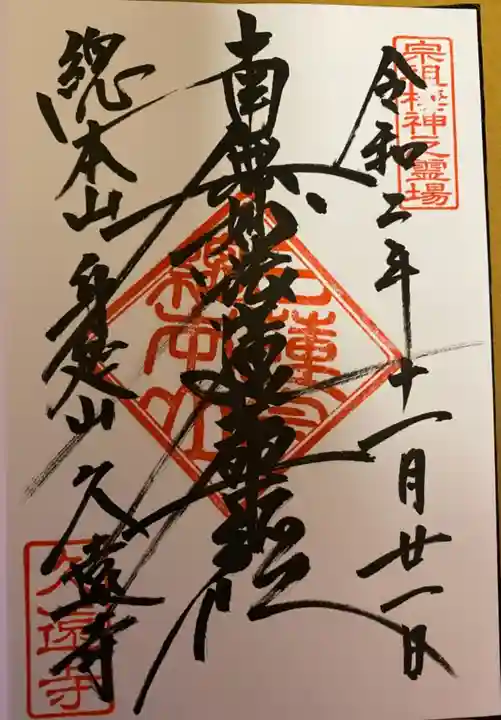 宗祖棲神之霊場
令和二年十一月廿一日
南無妙法蓮華経
日蓮宗
總本山
總本山 身延山 久遠寺
久遠寺